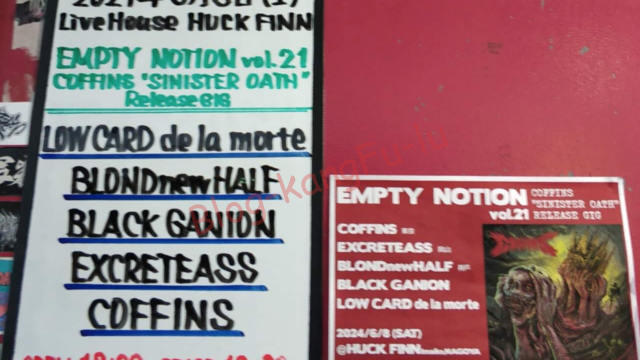 LiveHouse HUCK FINN
EMPTY NOTION vol.21
COFFINS "SINISTER OATH"
Release GIG
LOW CARD de la morte
BLONDnewHALF
BLACK GANION
EXCRETEASS
COFFINS
Blog KangFu-fu
EMPTY NOTION
vol.21
COFFINS
"SINISTER OATH"
RELEASE GIG
COFFINS
EXCRETEASS
BLONDnewHALF
BLACK GANION
LOW CARD de la morte
2024/6/8 (SAT)
@HUCK FINN imaike,NAGOYA